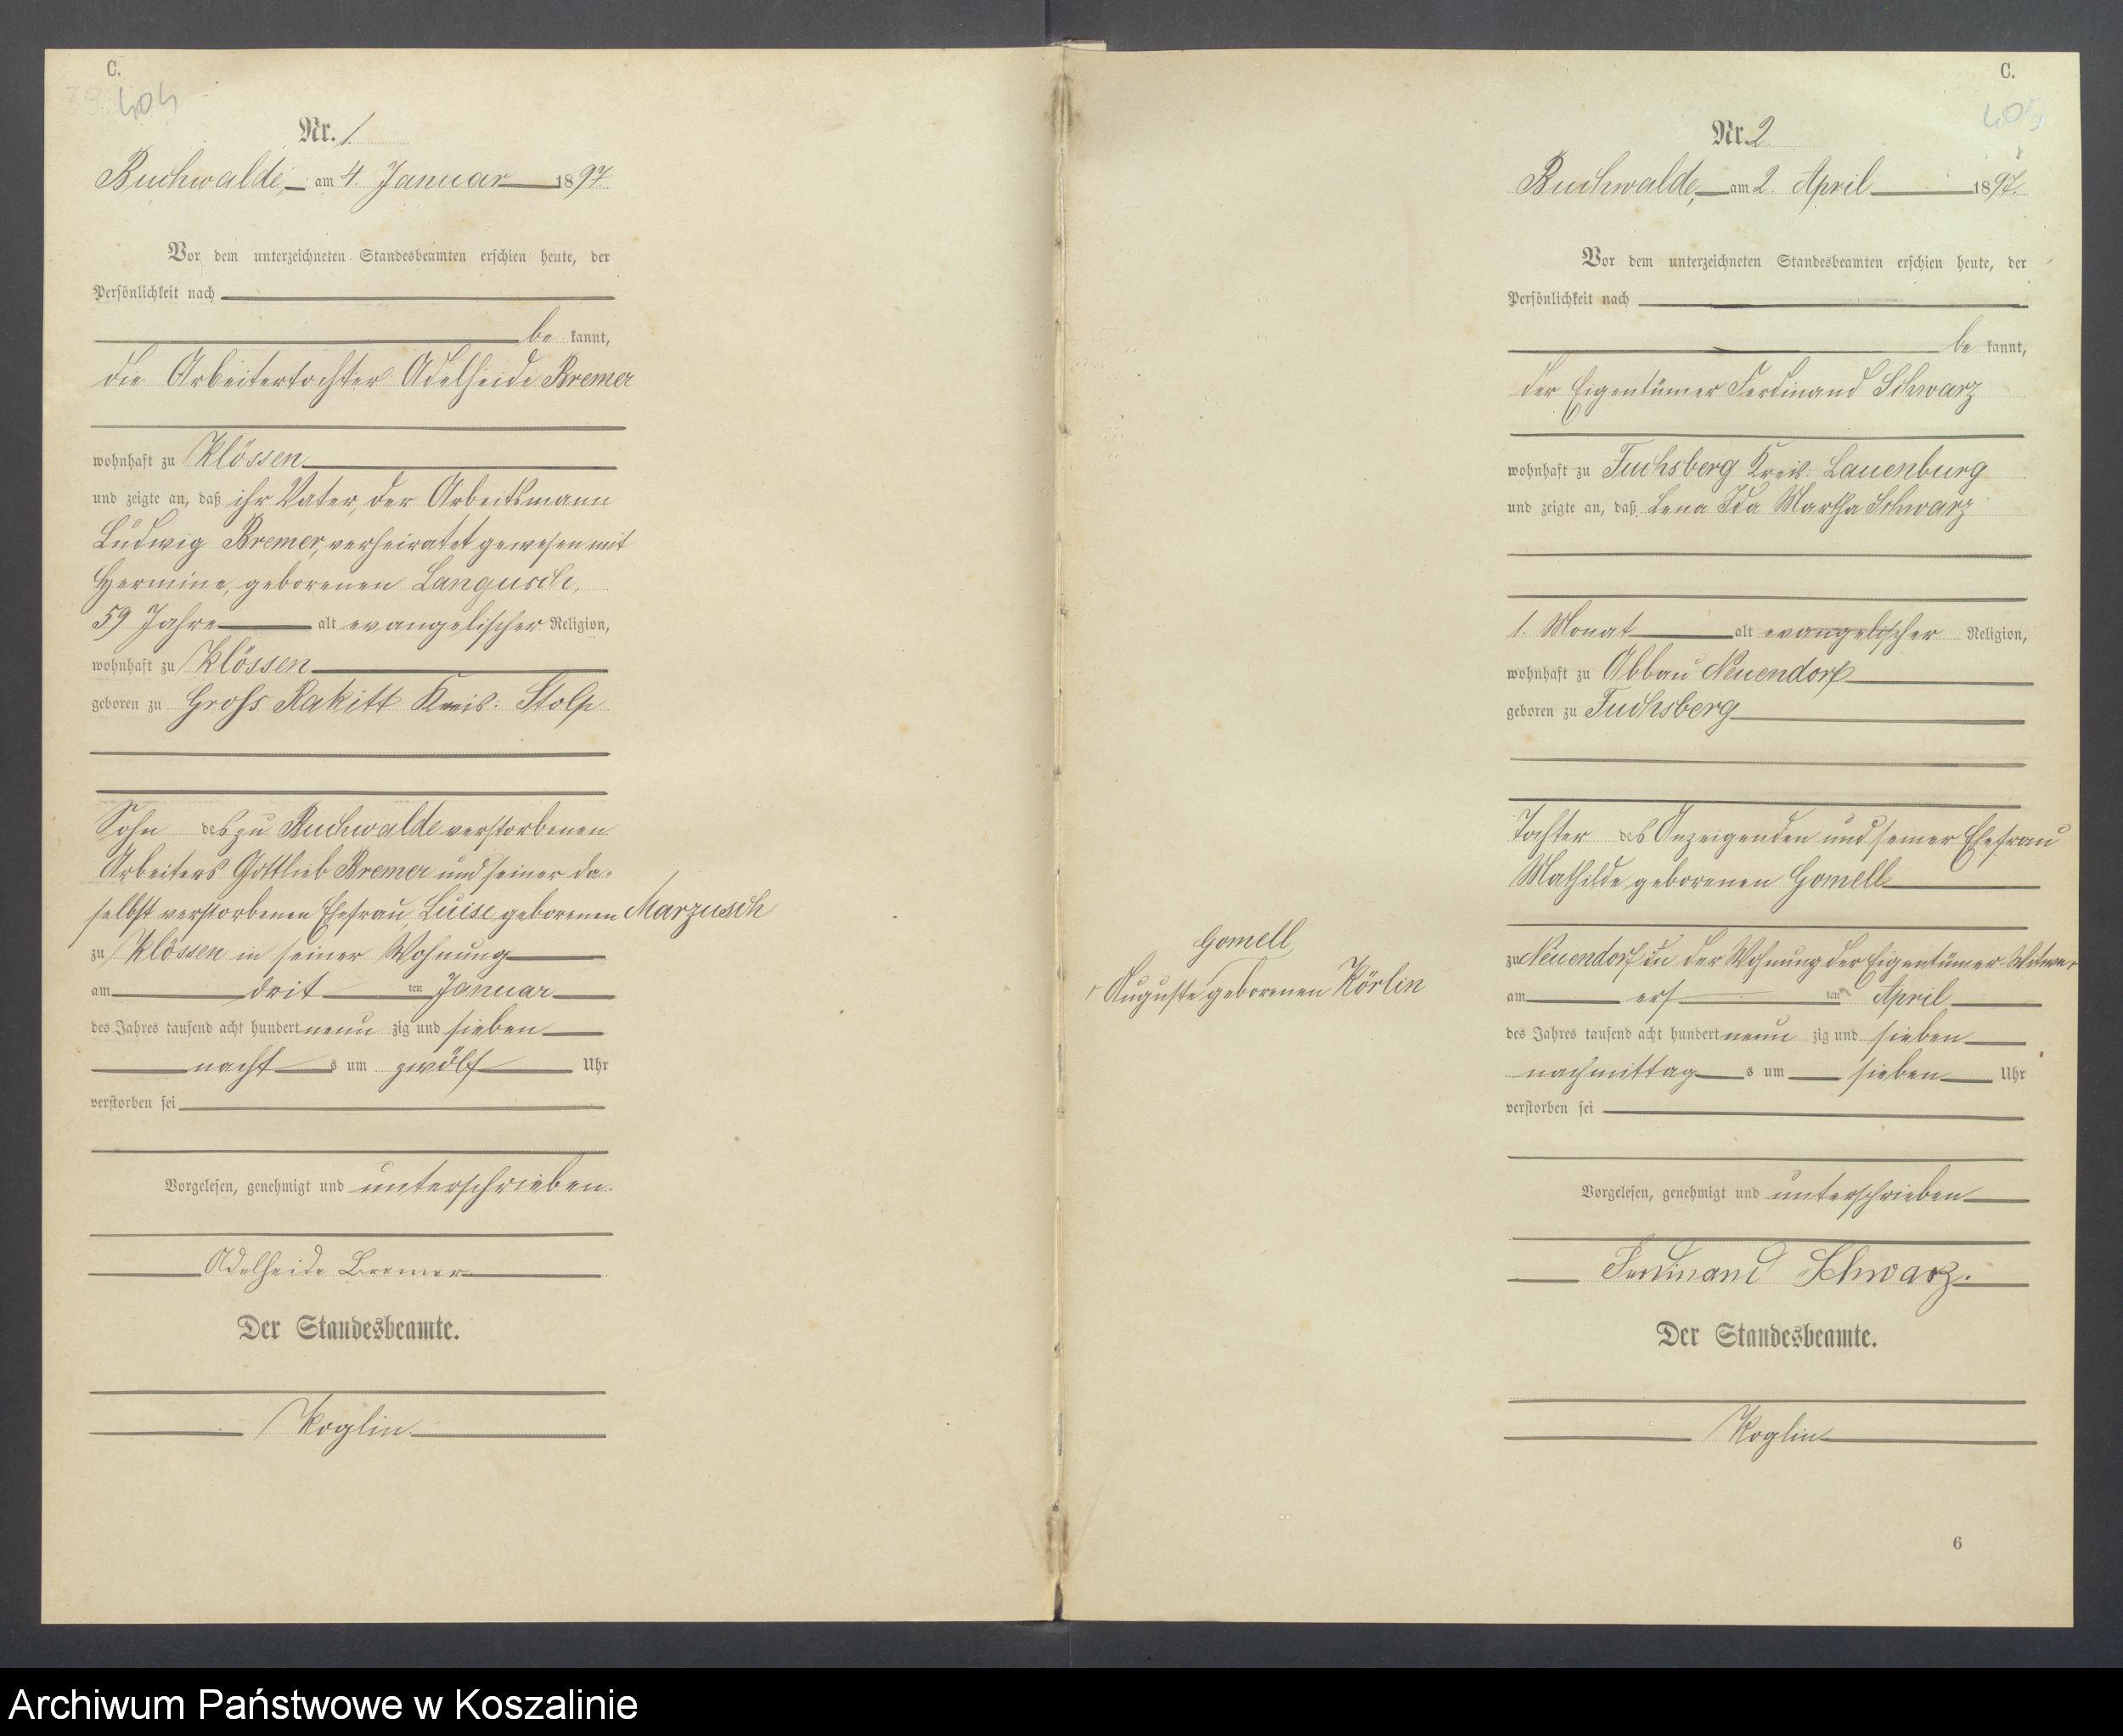 C.
404
Nr. 1
Buchwalde, am 4 Januar 1897
Vor dem unterzeichneten Standesbeamten erschien heute, der
Persönlichkeit nach
be kannt,
die Arbeitertochter Adelheide Bremer
wohnhaft zu Klössen
und zeigte an, daß ihr Vater, der Arbeitsmann
Ludwig Bremer, verheiratet gewesen mit
Hermine, geborenen Langusch,
59 Jahre alt evangelischer Religion,
wohnhaft zu Klössen
geboren zu Gross Rakitt Kreis: Stolp
Sohn des zu Buchwalde verstorbenen
Arbeiters Gottlieb Bremer und seiner da-
selbst verstorbenen Ehefrau, Luise geborenen Marzusch
zu Klössen in seiner Wohnung
am drit ten Januar
des Jahres tausend acht hundert neun zig und sieben
nacht s um zwölf Uhr
verstorben sei
Vorgelesen, genehmigt und unterschrieben.
Adelheide Bremer
Der Standesbeamte.
Koglin
C.
405
Nr. 2
Buchwalde, am 2. April 1897.
Vor dem unterzeichneten Standesbeamten erschien heute, der
Persönlichkeit nach
be kannt,
der Eigentümer Ferdinand Schwarz
wohnhaft zu Fuchsberg Kreis: Lauenburg
und zeigte an, daß Lena Ida Martha Schwarz
1. Monat alt evangelischer Religion,
wohnhaft zu Abbau Neuendorf
geboren zu Fuchsberg
Tochter des Anzeigenden und seiner Ehefrau
Mathilde geborenen Gomell
zu Neuendorf in der Wohnung der Eigentümer-Witwe
Gomell
Auguste geborenen Körlin
am ers ten April
des Jahres tausend acht hundert neun zig und sieben
nachmittag s um sieben Uhr
verstorben sei
Vorgelesen, genehmigt und unterschrieben
Ferdinand Schwarz.
Der Standesbeamte.
Koglin
6
Archiwum Państwowe w Koszalinie